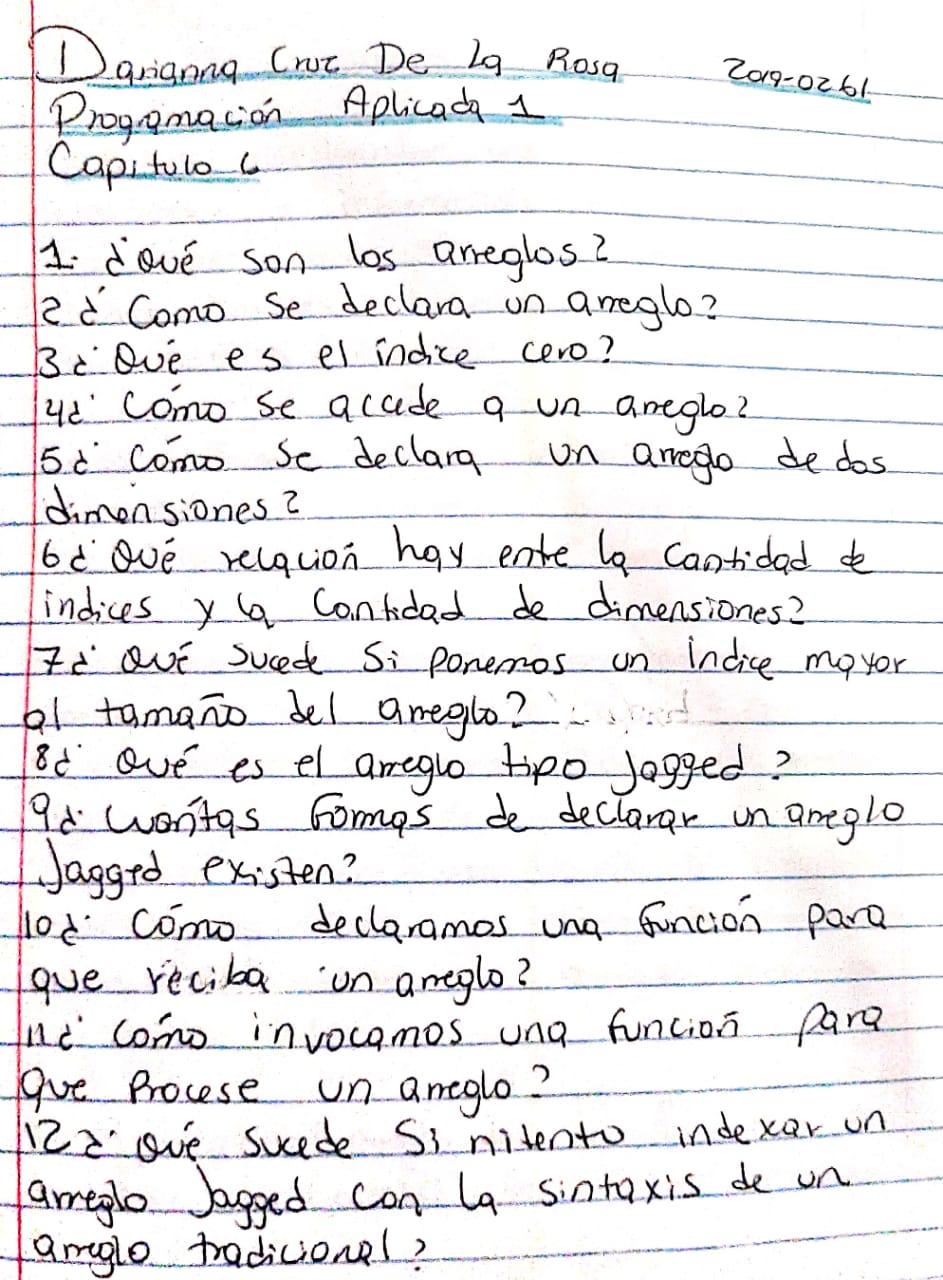 Darianna Cruz De La Rosa 2019-0261
Programación Aplicada 1
Capitulo 6
1. ¿Qué son los arreglos?
2 ¿ Como Se declara un arreglo?
3 ¿ Qué es el índice cero?
4 ¿ Cómo Se accede a un arreglo?
5 ¿ Cómo Se declara un arreglo de dos
dimensiones?
6 ¿ Qué relación hay ente la Cantidad de
índices y la Cantidad de dimensiones?
7 ¿ Qué Sucede Si ponemos un índice mayor
al tamaño del arreglo?
8 ¿ Qué es el arreglo tipo Jagged?
9 ¿ Cuántas Formas de declarar un arreglo
Jagged existen?
10 ¿ Cómo declaramos una función para
que reciba un arreglo?
11 ¿ Cómo invocamos una función para
que Procese un arreglo?
12 ¿ Qué Sucede Si nitento indexar un
arreglo Jagged con la sintaxis de un
arreglo tradicional?